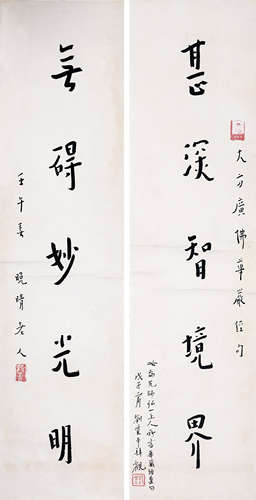 大方廣佛華嚴經句
甚深智境界
弘一上人
戊子
無碍妙光明
壬午春 晚晴老人